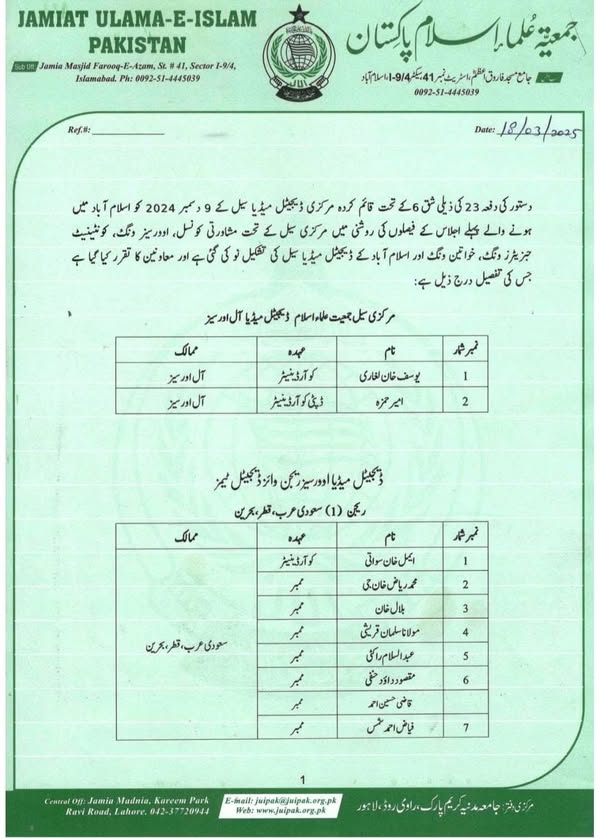 JAMIAT ULAMA-E-ISLAM
PAKISTAN
Sub Off: Jamia Masjid Farooq-E-Azam, St. # 41, Sector I-9/4,
Islamabad. Ph: 0092-51-4445039
جمعیۃ عُلماء اسلام پاکستان
جامع مسجد فاروق اعظمؓ، اسٹریٹ نمبر 41 سیکٹر I-9/4، اسلام آباد
0092-51-4445039
Ref.#:
Date: 18/03/2025
دستور کی دفعہ 23 کی ذیلی شق 6 کے تحت قائم کردہ مرکزی ڈیجیٹل میڈیا سیل کے 9 دسمبر 2024 کو اسلام آباد میں
ہونے والے پہلے اجلاس کے فیصلوں کی روشنی میں مرکزی سیل کے تحت مشاورتی کونسل، اوورسیز ونگ، کونٹینیٹ
جنریٹرز ونگ، خواتین ونگ اور اسلام آباد کے ڈیجیٹل میڈیا سیل کی تشکیل نو کی گئی ہے اور معاونین کا تقرر کیا گیا ہے
جس کی تفصیل درج ذیل ہے:
مرکزی سیل جمعیت علماء اسلام ڈیجیٹل میڈیا آل اورسیز
نمبر شمار نام عہدہ ممالک
1 یوسف خان لغاری کوآرڈینیٹر آل اورسیز
2 امیر حمزہ ڈپٹی کوآرڈینیٹر آل اورسیز
ڈیجیٹل میڈیا اوورسیز ریجن وائز ڈیجیٹل ٹیمز
ریجن (1) سعودی عرب، قطر، بحرین
نمبر شمار نام عہدہ ممالک
1 ایمل خان سواتی کوآرڈینیٹر
2 محمد ریاض خان جی ممبر
3 بلال خان ممبر
4 مولانا سلمان قریشی ممبر
سعودی عرب، قطر، بحرین
5 عبدالسلام راکٹی ممبر
6 مقصود داؤد حنفی ممبر
قاضی حسین احمد ممبر
7 فیاض احمد شمس ممبر
1
Central Off: Jamia Madnia, Kareem Park
Ravi Road, Lahore. 042-37720944
E-mail: juipak@juipak.org.pk
Web: www.juipak.org.pk
مرکزی دفتر: جامعہ مدنیہ کریم پارک، راوی روڈ، لاہور